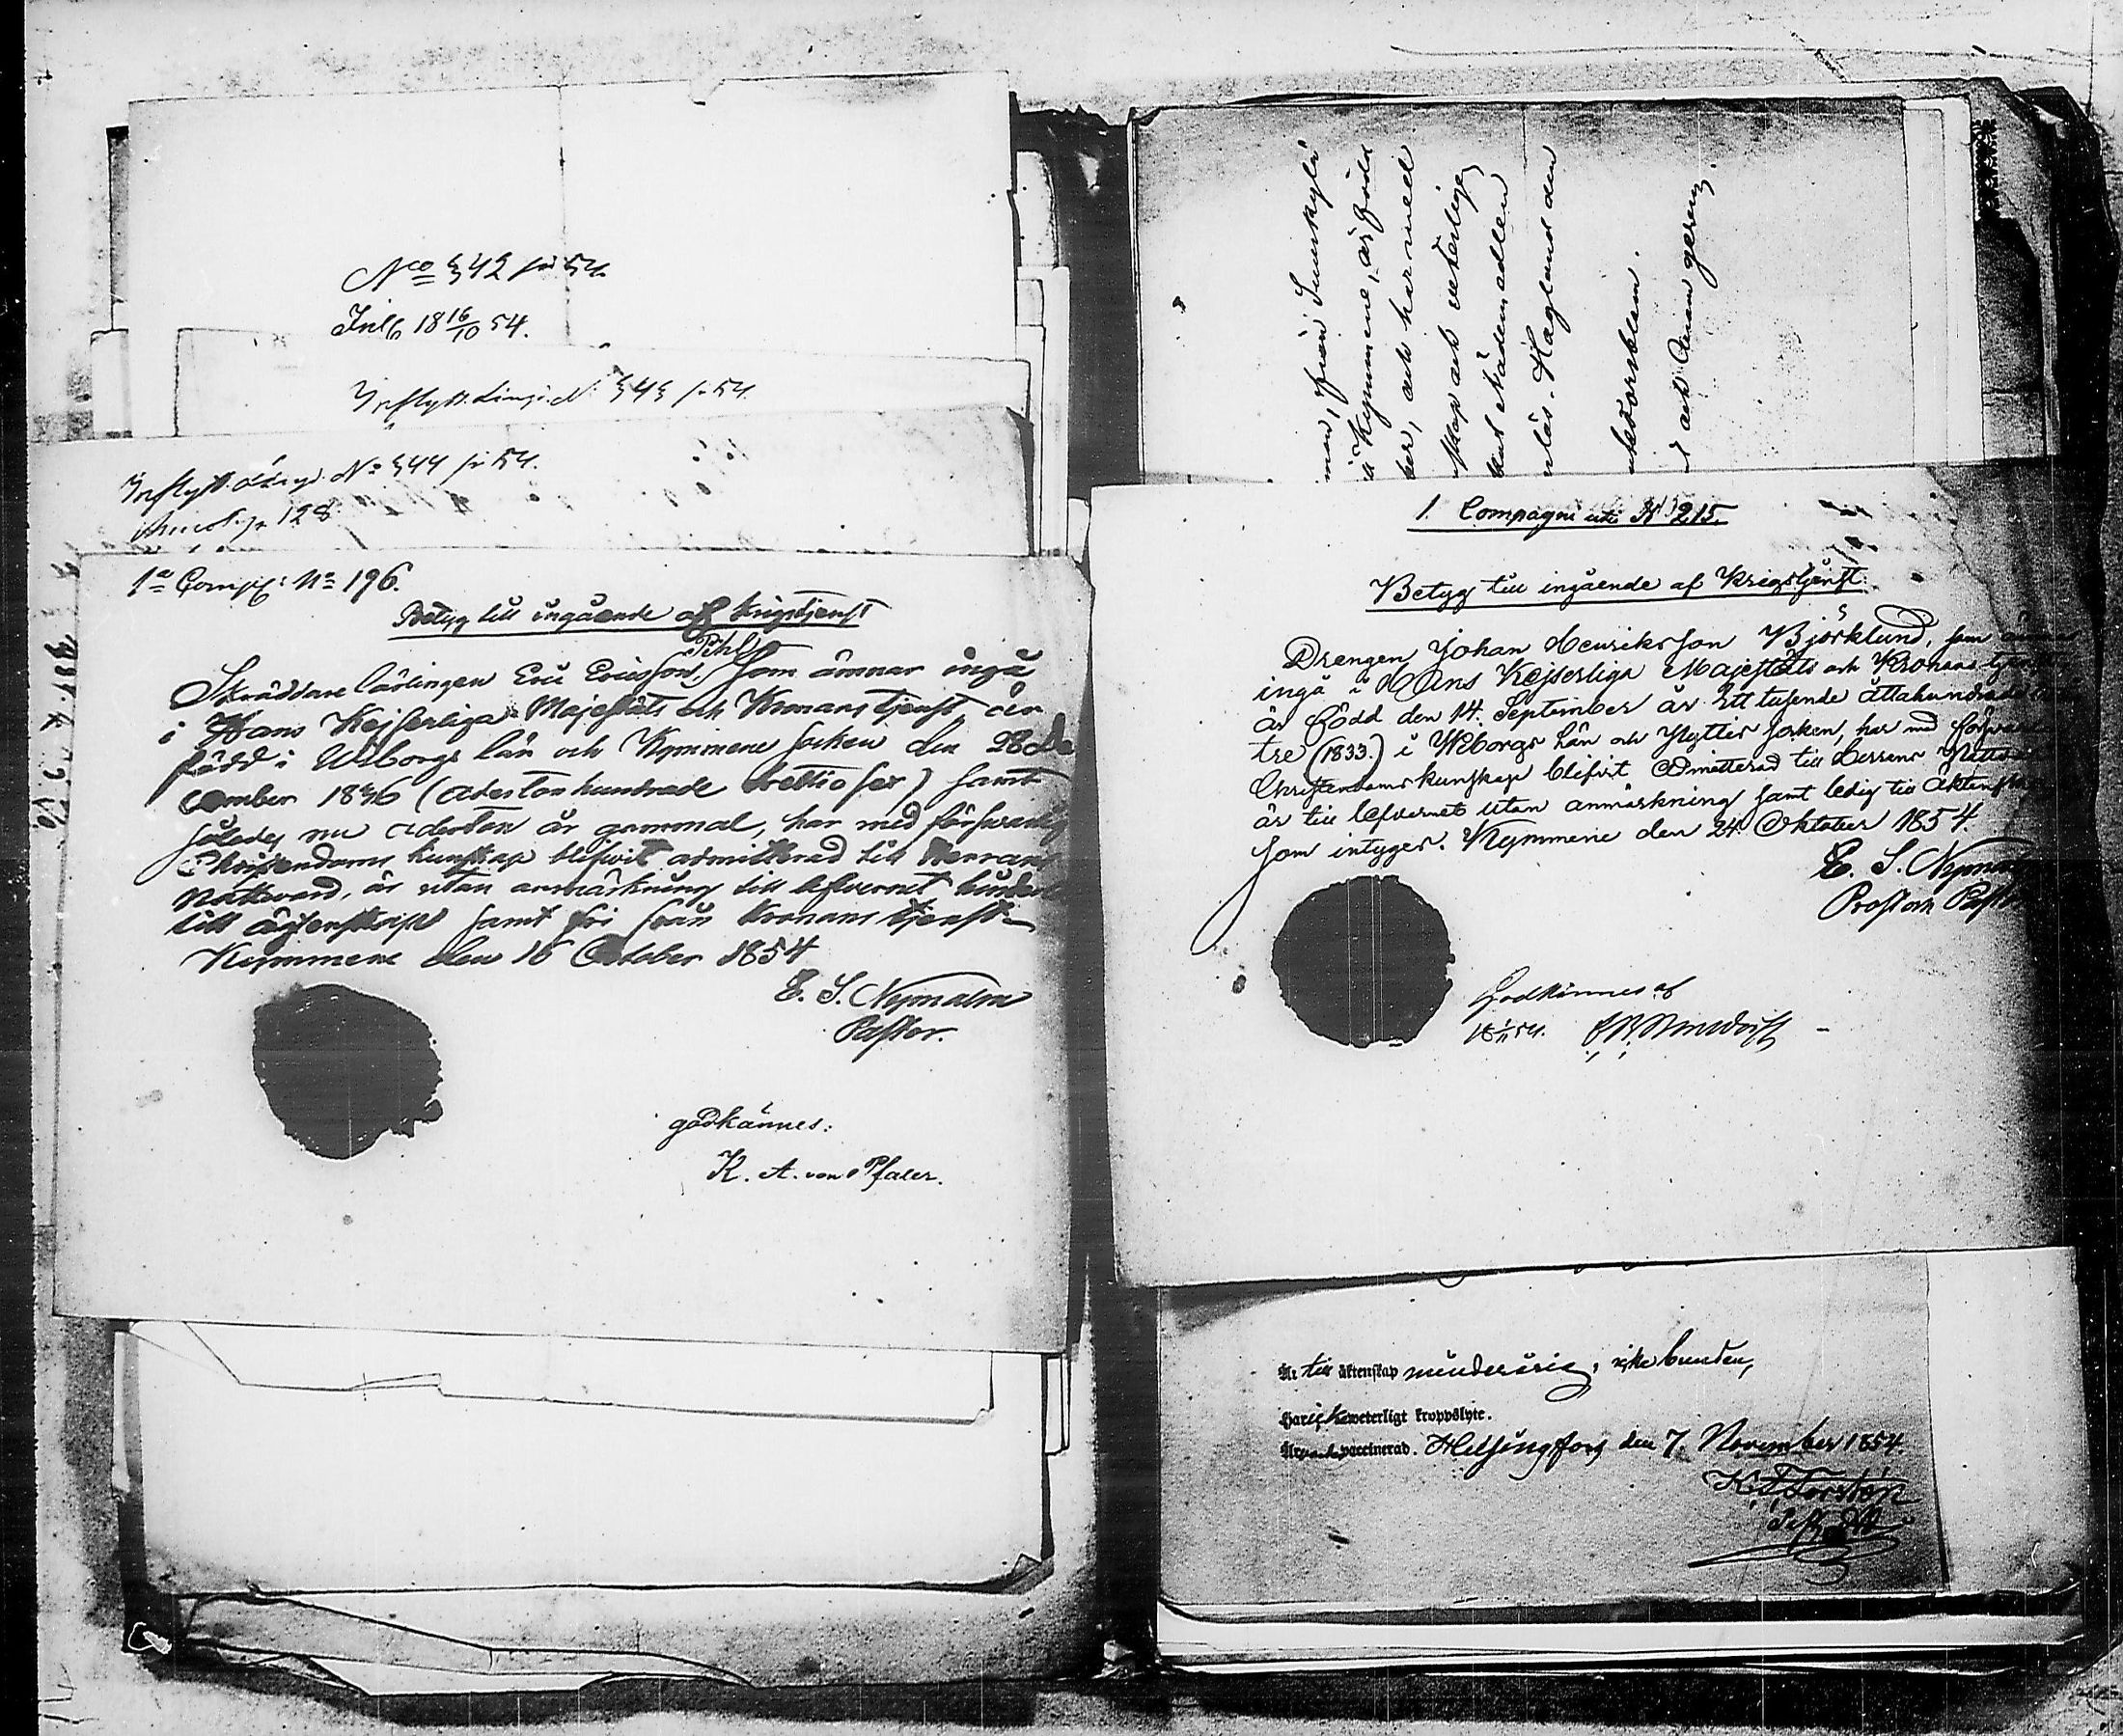 No 342 pr 54.
Infl 18 16/10 54.
Inflytt. Läng. N. 343 pr 54.
Inflytt. Läng. No 344 pr 54.
128
1a Comp: No 196.
Betyg till ingående af krigstjenst
Pihl
Skräddare lärlingen Eric Ericsson, som ämnar ingå
i Hans Kejserliga Majestäts och Kronans tjenst, är
född i Wiborgs län och Kymmene socken den De
cember 1836 (aderton hundrade trettio sex) samt
således nu aderton år gammal, har med försvarlig
Christendoms kunskap blifvit admitterad till Herrans
Nattvard, är utan anmärkning till lefvernet hinderlös
till ägtenskap samt fri från Kronans tjenst.
Kymmene den 16 October 1854
E. S. Nymalm
Pastor.
godkännes:
K. A. von Pfaler.
man, från Summkylä
a Kymmene, är född
ber, och har med
skap och veterlige
kut Mademadlen
nlös. Höglund den
1. Compagni ute No 215.
Betyg till ingående af Krigstjenst.
Drengen Johan Henriksson Björklund, som ämnar
ingå i Hans Kejserliga Majestäts och Kronans tjenst
är född den 14. September år Ett tusende åttahundrade
tre (1833.) i Wiborgs Län och Pyttis socken, har med försvar
Christendoms kunskap blifvit admitterad till Herrens Nattv
är till lefvernet utan anmärkning samt ledig till äktensk
som intygar. Kymmene den 24. Oktober 1854.
E. S. Nymalm
Prost och Past
Godkännes af
18 1/11 54.
Är till äktenskap minderårig, icke bunden,
Har icke veterligt kroppslyte.
Är vaccinerad. Helsingfors den 7. November 1854